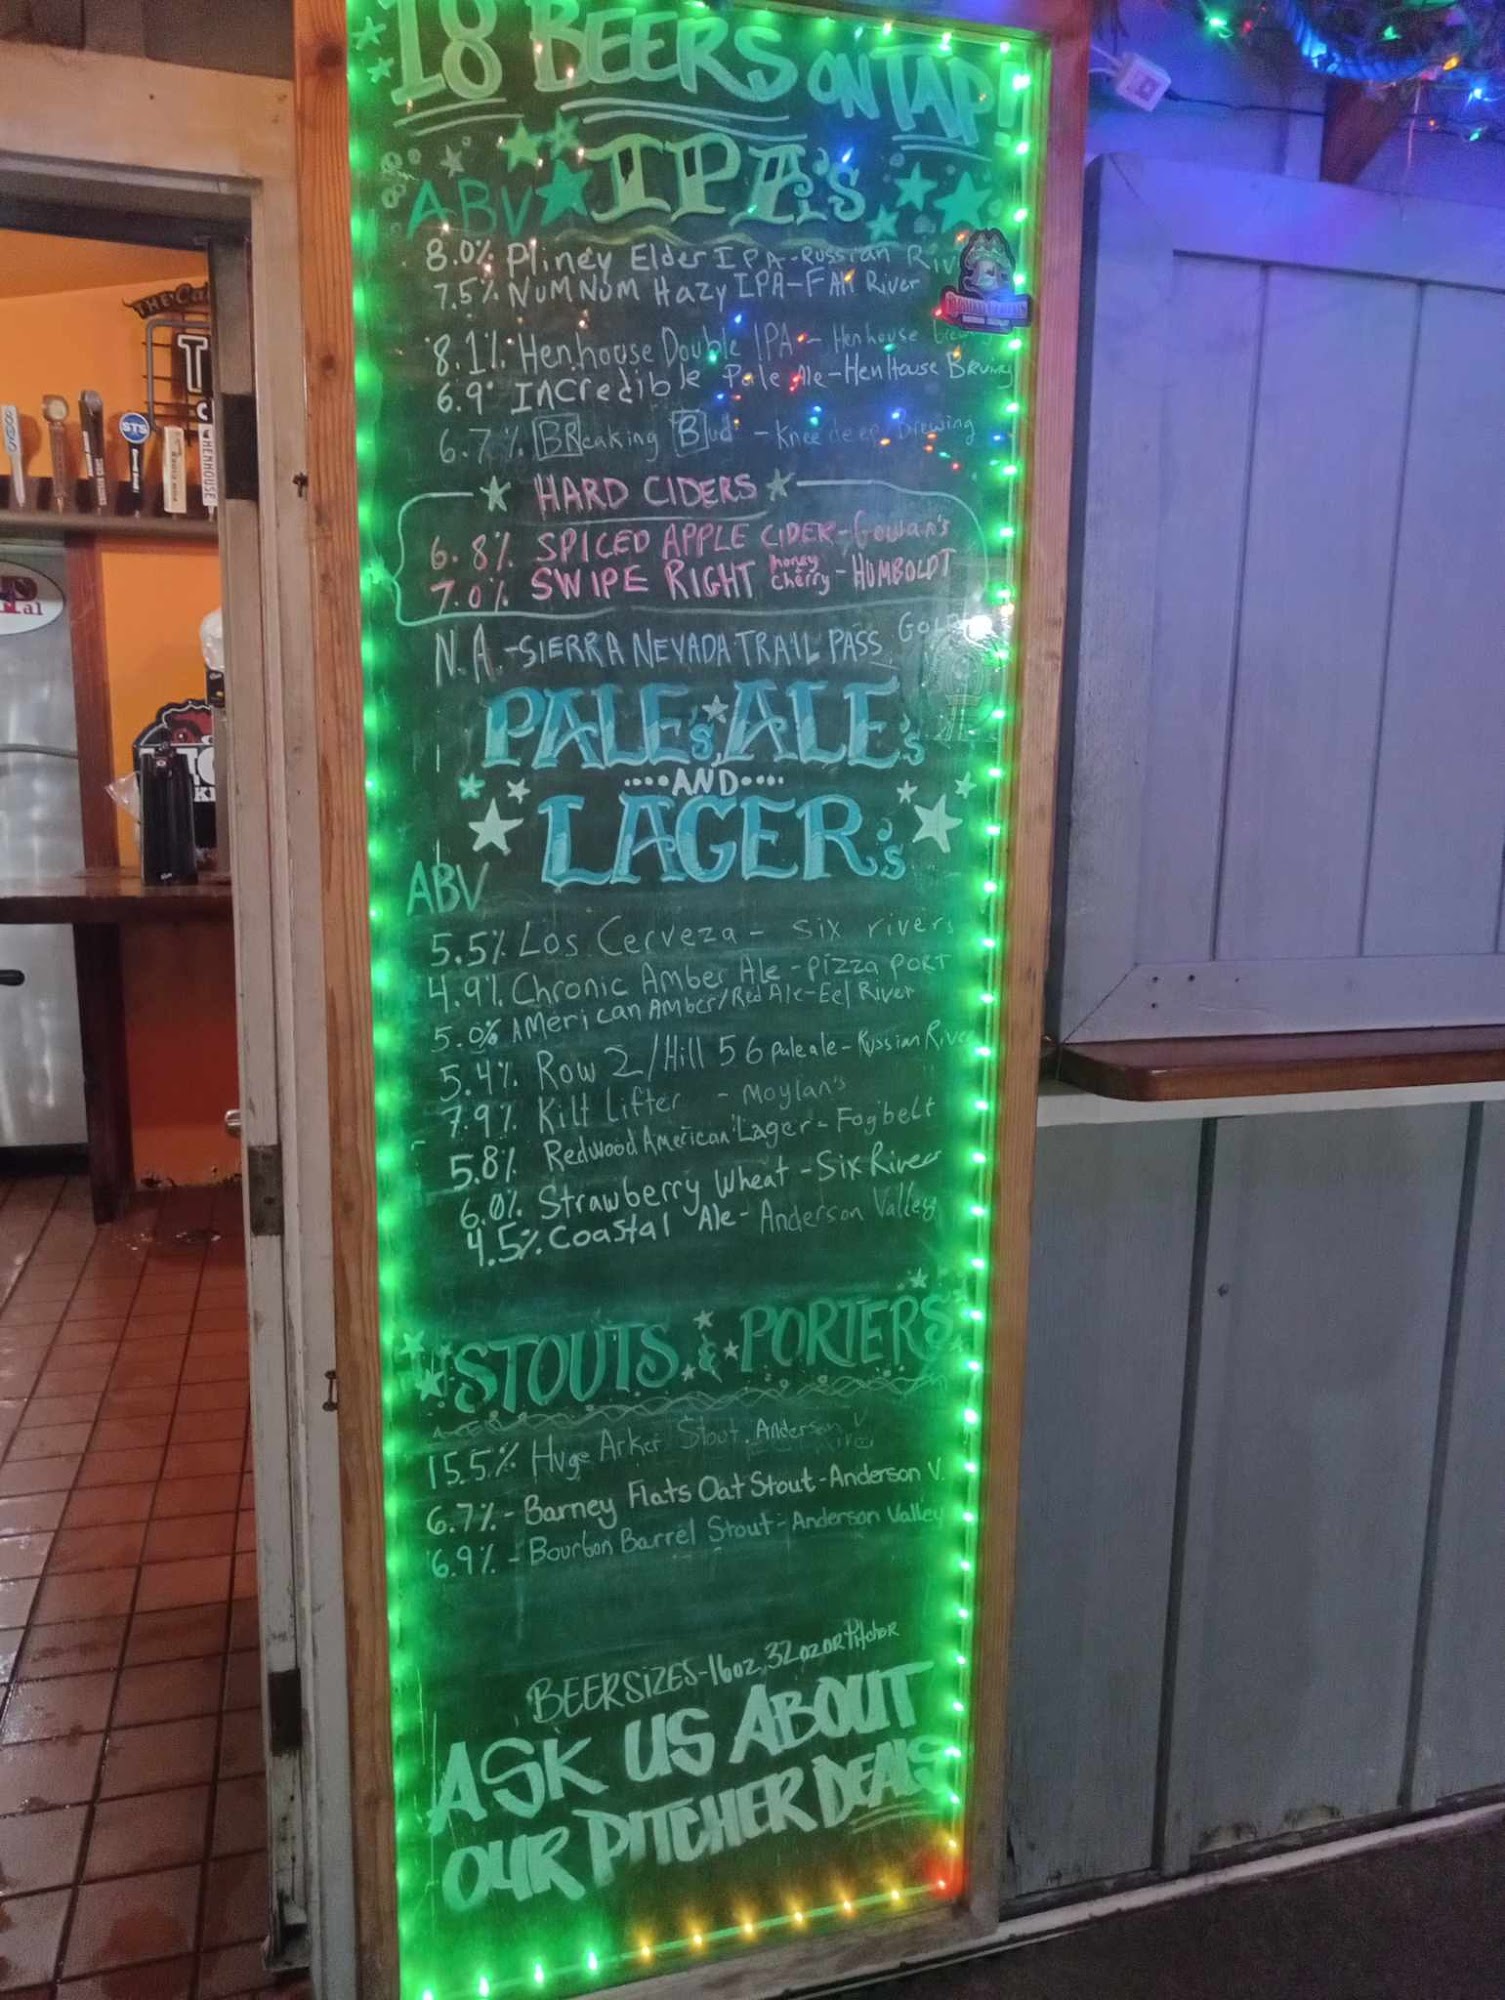 18 BEERS ON TAP!
ABV IPA's
8.0% Pliney Elder IPA - Russian Riv
7.5% NUM NUM Hazy IPA - FAll River
8.1% Henhouse Double IPA - Henhouse
6.9% INCredible Pale Ale - HenHouse Bruing
6.7% BReaking Bud - Kneedeep Brewing
HARD CIDERS
6.8% SPICED APPLE CIDER - Gowan's
7.0% SWIPE RIGHT honey cherry - HUMBOLDT
N.A. - SIERRA NEVADA TRAIL PASS
PALE's, ALE's
AND
LAGER's
ABV
5.5% Los Cerveza - Six rivers
4.9% Chronic Amber Ale - Pizza PORT
5.0% AMerican AMber/Red Ale - Eel River
5.4% Row 2/Hill 56 pale ale - Russian River
7.9% Kilt Lifter - Moylan's
5.8% Redwood American Lager - Fogbelt
6.0% Strawberry Wheat - Six Rivers
4.5% Coastal Ale - Anderson Valley
STOUTS & PORTERS
15.5% Huge Arker Stout, Anderson V.
6.7% - Barney Flats Oat Stout - Anderson V.
6.9% - Bourbon Barrel Stout - Anderson Valley
BEER SIZES - 16oz, 32oz OR Pitcher
ASK US ABOUT
OUR PITCHER DEALS
STS
HENHOUSE